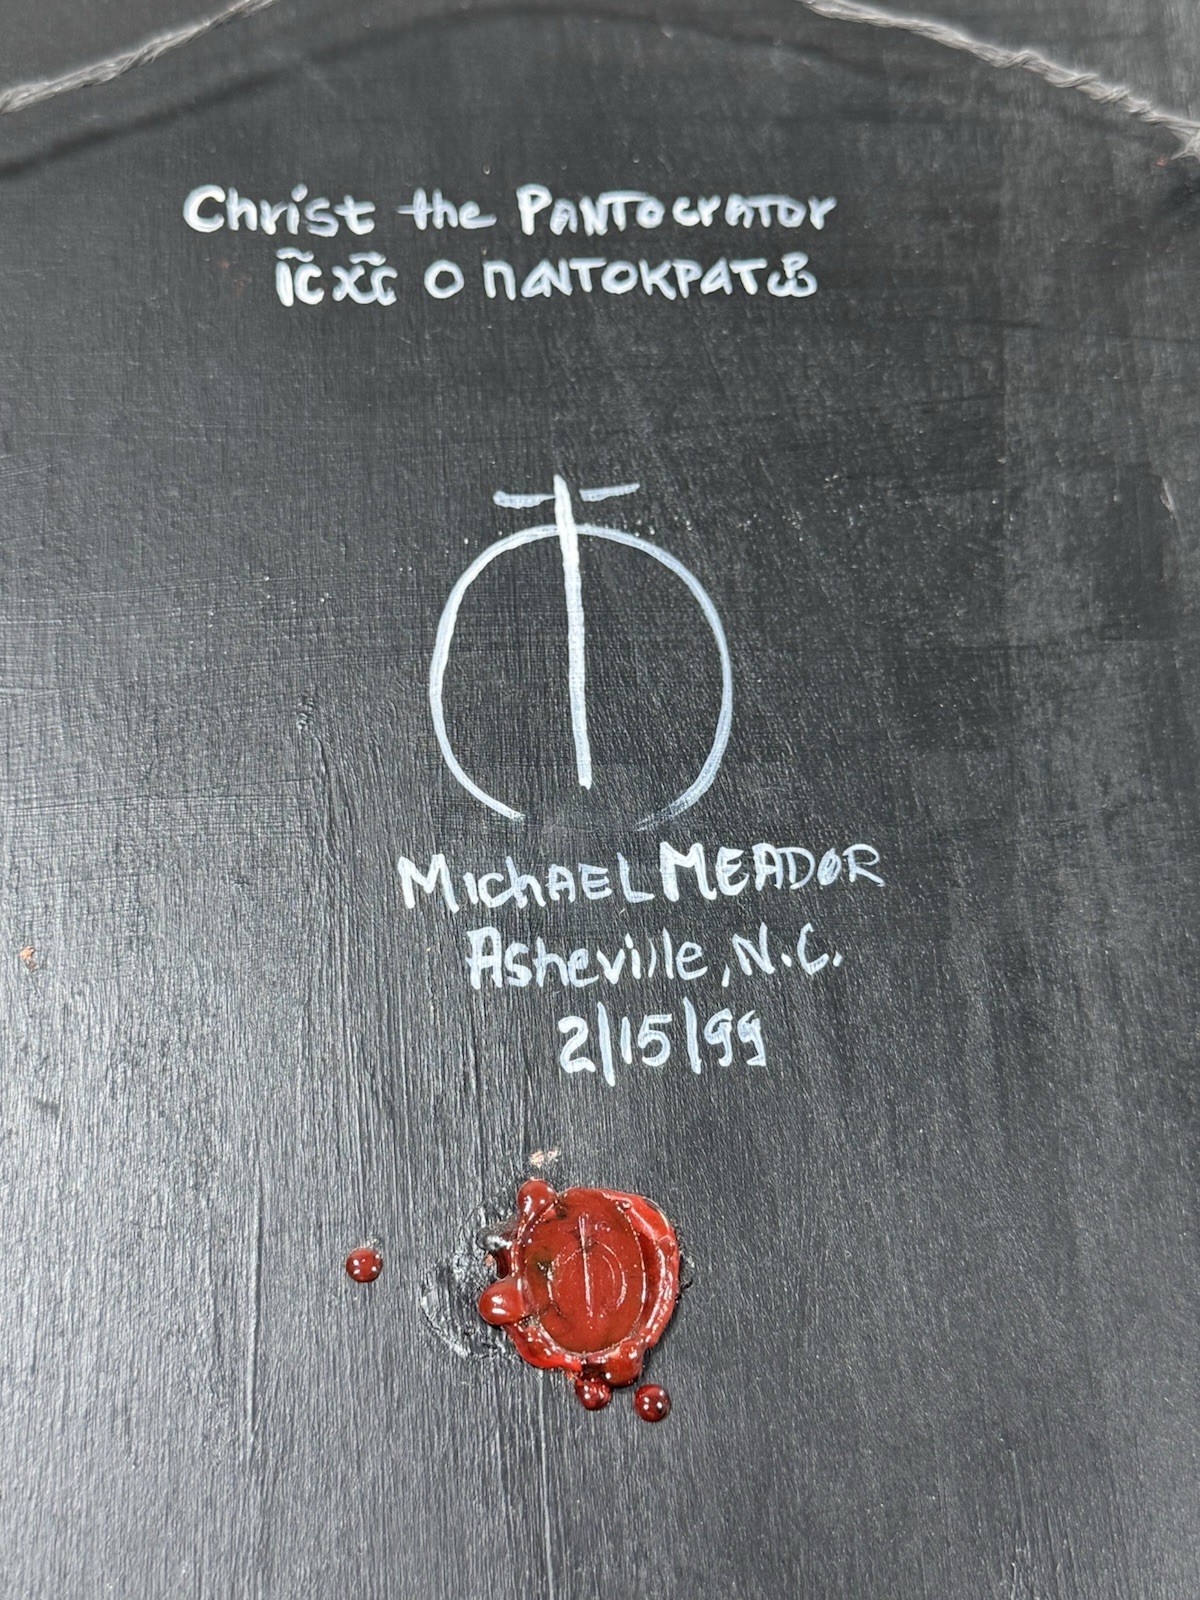 Christ the PANTOCrATOr
ΙC̃ XC̃ Ο ΠΑΝΤΟΚΡΑΤΩΡ
MichAEL MEADOR
Asheville, N.C.
2/15/99